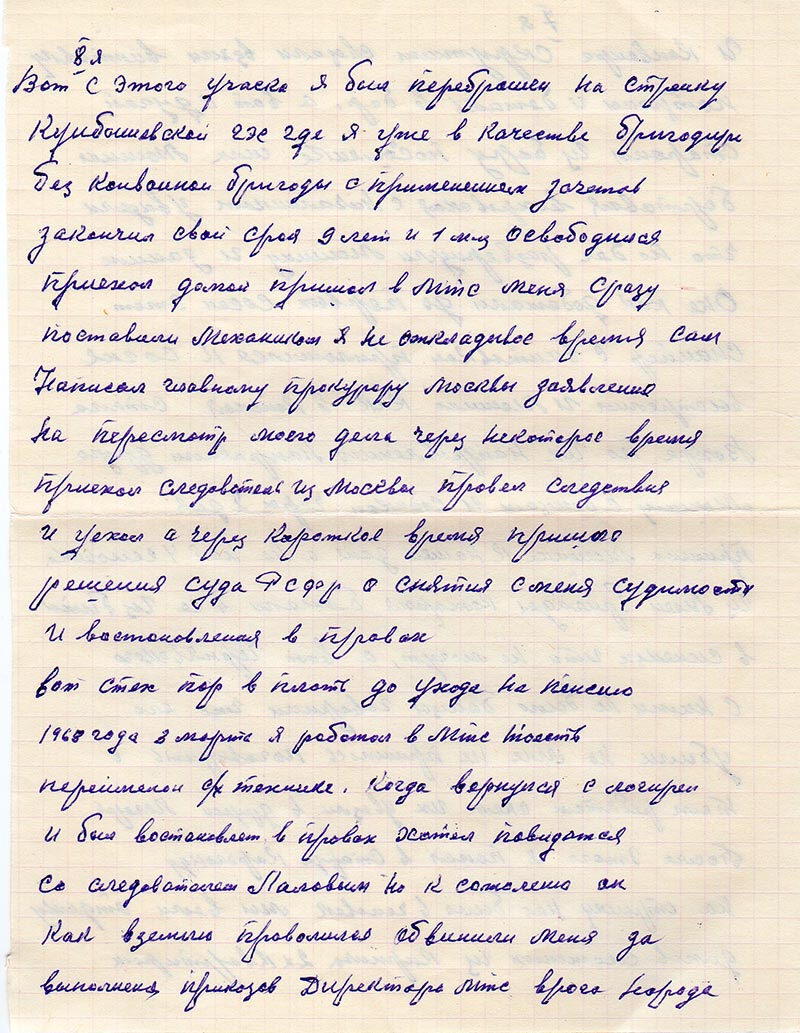 8я
Вот с этого учаска я был переброшен на стройку
Куйбышевской гэс где я уже в качестве бригодира
без конвойной бригоды с применением зачетов
закончил свой срок 9 лет и 1 м-ц освободился
приехол домой пришол в мтс меня сразу
поставили механиком я не откладывое время сам
написал главному прокурору москвы заявления
на пересмотр моего дела через некоторое время
приехол следователь из москвы провел следствия
и уехол а через короткое время пришло
решения суда РСФСР о снятия с меня судимости
и востоновления в провах
вот стех пор в плоть до ухода на пенсию
1968 года 3 марта я работол в мтс тоесть
переименой с/х технике. Когда вернулся с логирей
и был востоновлен в провах хотел повидатся
со следователем Паловым но к сожолению он
как вземлю проволился обвинили меня за
выполнения прикозов Директора мтс врога народа